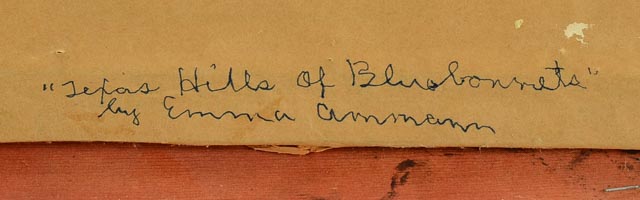 "Texas Hills Of Bluebonnets"
by Emma Ammann